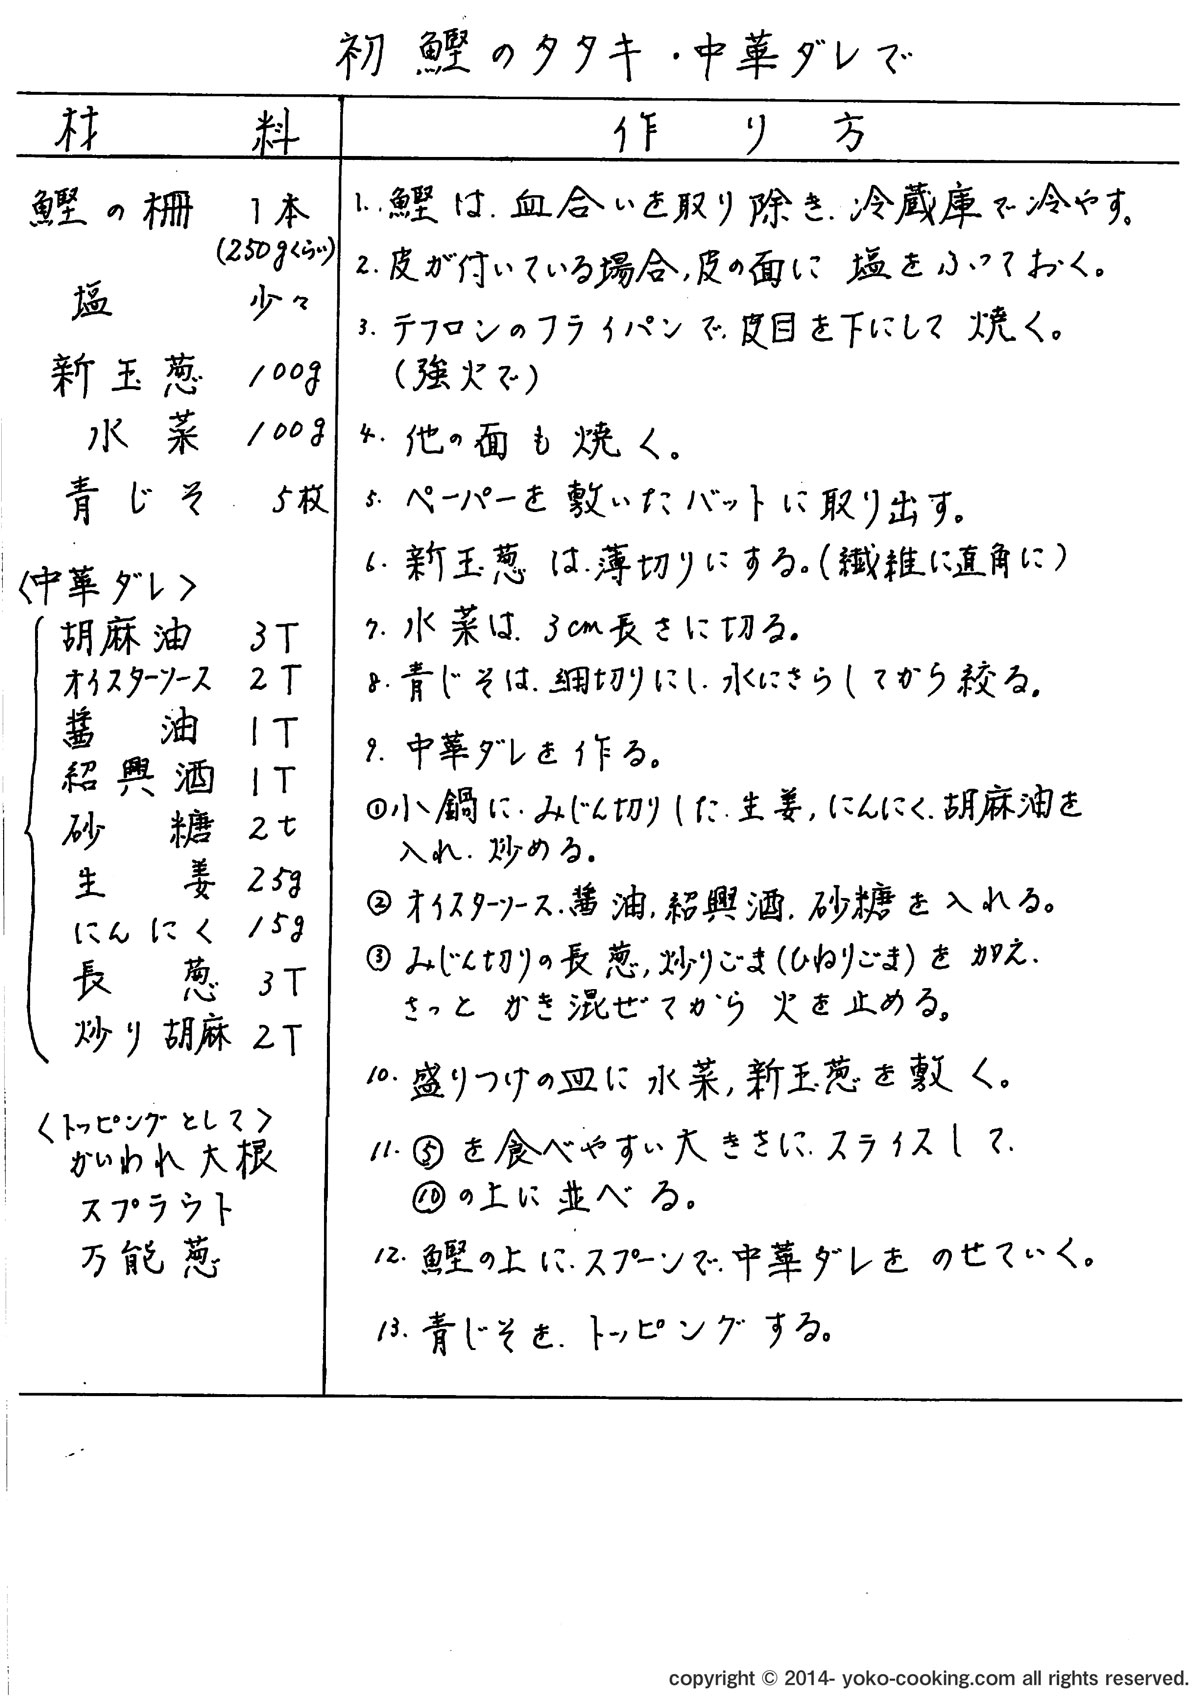 初鰹のタタキ・中華ダレで
材料
鰹の柵 1本
(250gくらい)
塩 少々
新玉葱 100g
水菜 100g
青じそ 5枚
〈中華ダレ〉
胡麻油 3T
オイスターソース 2T
醤油 1T
紹興酒 1T
砂糖 2t
生姜 25g
にんにく 15g
長葱 3T
炒り胡麻 2T
〈トッピングとして〉
かいわれ大根
スプラウト
万能葱
作り方
1. 鰹は、血合いを取り除き、冷蔵庫で冷やす。
2. 皮が付いている場合,皮の面に塩をふっておく。
3. テフロンのフライパンで、皮目を下にして焼く。
(強火で)
4. 他の面も焼く。
5. ペーパーを敷いたバットに取り出す。
6. 新玉葱は、薄切りにする。(繊維に直角に)
7. 水菜は、3cm長さに切る。
8. 青じそは、細切りにし、水にさらしてから絞る。
9. 中華ダレを作る。
①小鍋に、みじん切りした、生姜,にんにく、胡麻油を
入れ、炒める。
②オイスターソース、醤油,紹興酒、砂糖を入れる。
③みじん切りの長葱,炒りごま(ひねりごま)を加え、
さっとかき混ぜてから火を止める。
10. 盛りつけの皿に水菜,新玉葱を敷く。
11. ⑤を食べやすい大きさに、スライスして、
⑩の上に並べる。
12. 鰹の上に、スプーンで、中華ダレをのせていく。
13. 青じそを、トッピングする。
copyright © 2014- yoko-cooking.com all rights reserved.